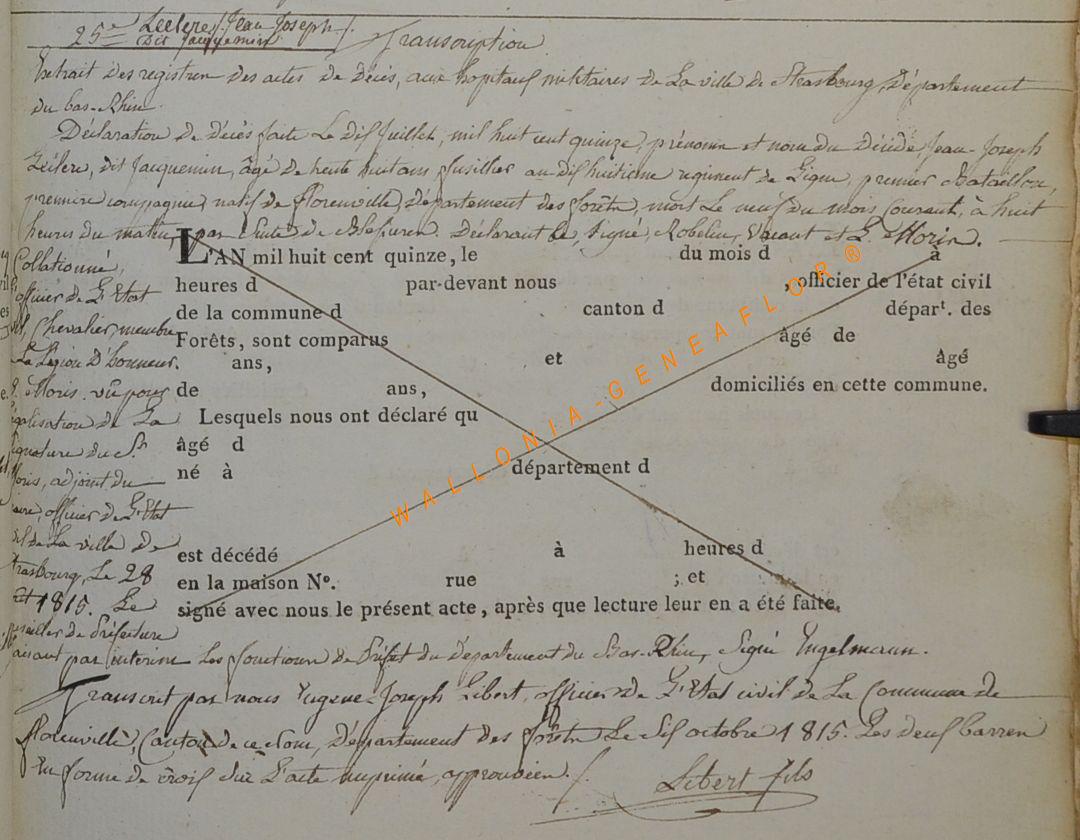 25e Leclere, Jean Joseph
Dit Jacquemin
Transcription
Extrait des registres des actes de décès, aux hopitaux militaires de La ville de Strasbourg, Département
du bas-Rhin.
Déclaration de décès faite Le dix Juillet, mil huit cent quinze, prénoms et nom du décédé, Jean-Joseph
Leclere, dit Jacquemin, âgé de trente huit ans, fusillier au dix huitieme regiment de Ligne, premier Bataillon,
premiere compagnie, natif de florenville, département des forêts, mort Le neuf du mois Courant, à huit
heures du matin, par suite de Blessures. Déclarant Le, signé, Robelin, Vacant et L. Moris.
L'AN mil huit cent quinze, le du mois d à
heures d par-devant nous , officier de l'état civil
de la commune d canton d départ. des
Forêts, sont comparus âgé de
ans, et âgé
de ans, domiciliés en cette commune.
Lesquels nous ont déclaré qu
âgé d
né à département d
est décédé à heures d
en la maison No. rue ; et
signé avec nous le présent acte, après que lecture leur en a été faite.
Collationné,
officier de L'Etat
Chevalier, membre
La Légion D'honneur.
Moris. vû pour
légalisation de La
signature du Sr.
Moris, adjoint du
maire, officier de L'Etat
civil de La ville de
Strasbourg, Le 28
1815. Le
conseiller de Préfecture
faisant par interim Les fonctions de Préfet du Département du Bas-Rhin, Signé Engelmann.
Transcrit par nous Eugene-Joseph Libert, officier de L'Etat civil de La Commune de
florenville, Canton de ce Nom, Département des forêts Le dix octobre 1815. Les deux barres
En forme de croix sur L'acte imprimé, approuvées.
Libert fils
WALLONIA-GENEAFLOR®